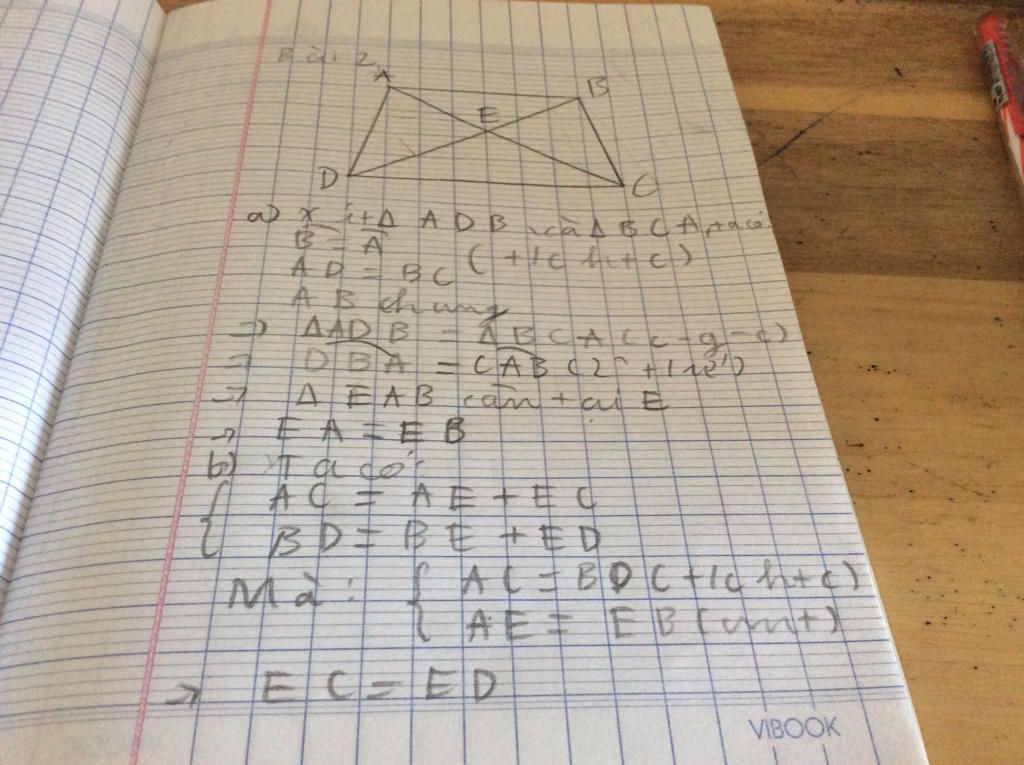 Bài 2
A
B
E
D
C
a) xét Δ ADB và Δ BCA ta có
B = A
AD = BC (t/c htc)
AB chung
=> ΔADB = ΔBCA (c-g-c)
=> DBA = CAB (2 t/ứ)
=> Δ EAB cân tại E
=> EA = EB
b) Ta có:
{ AC = AE + EC
BD = BE + ED
Mà: { AC = BD (t/c htc)
AE = EB (cmt)
=> EC = ED
VIBOOK